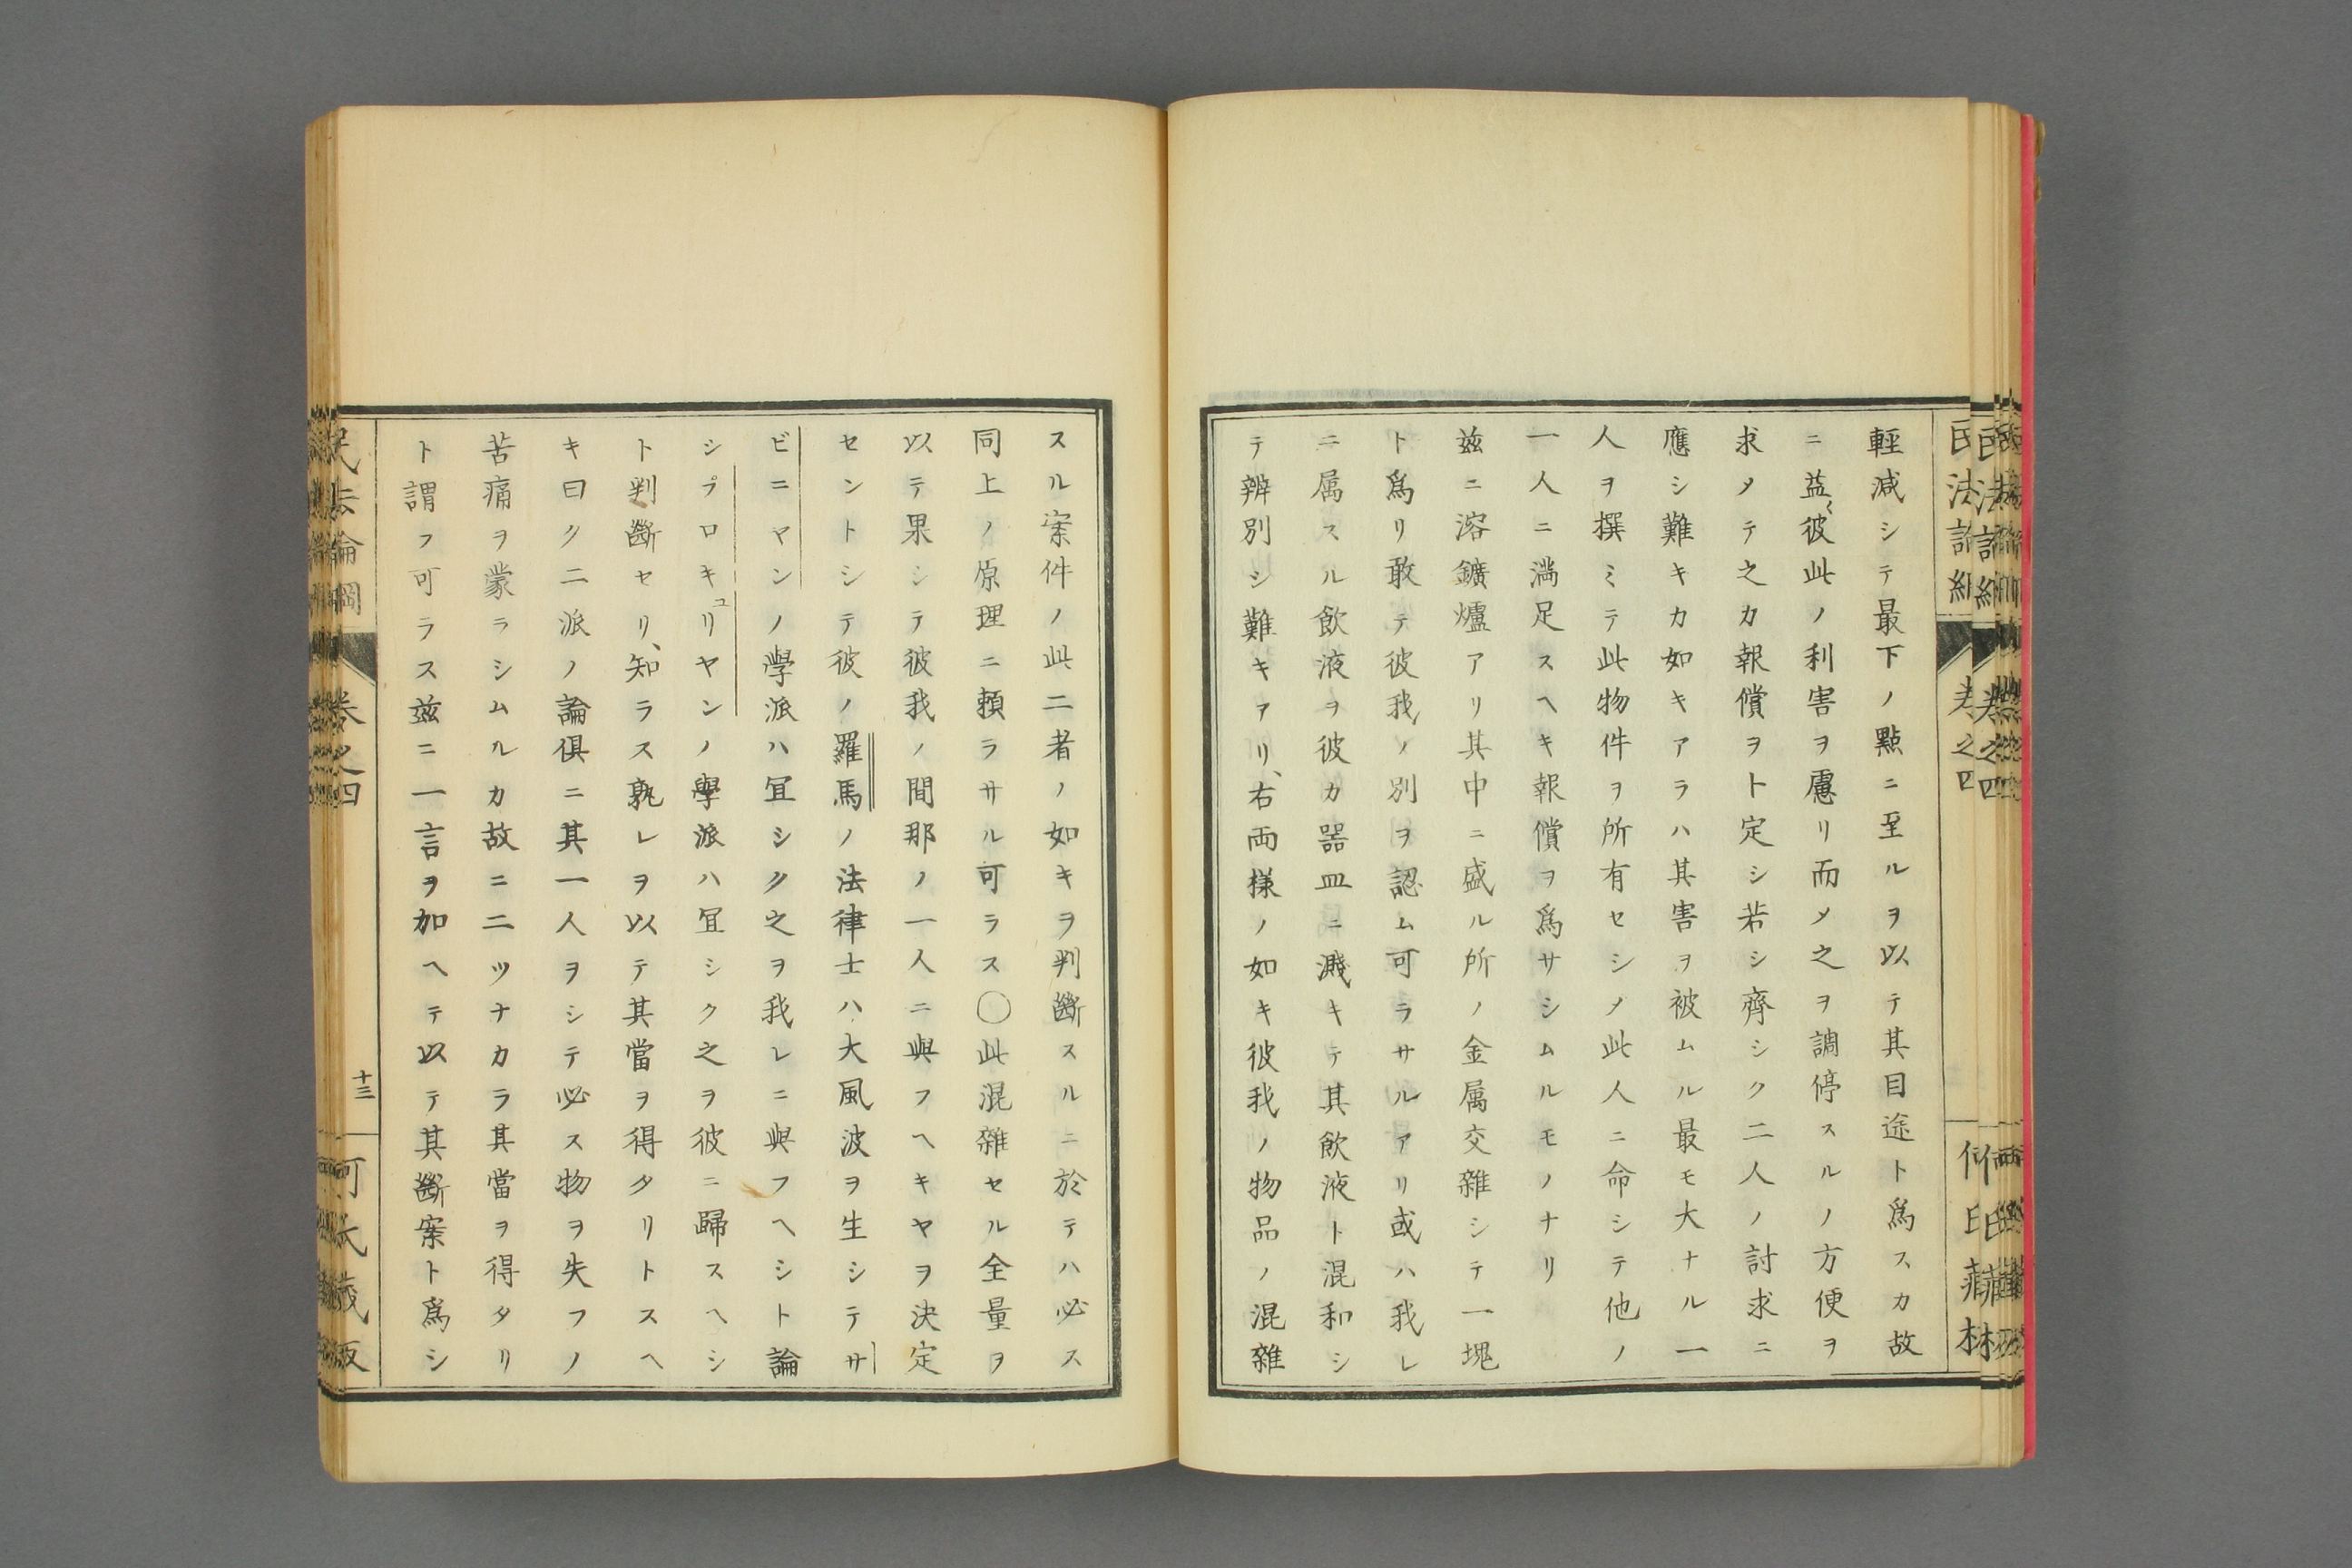 輕減シテ最下ノ點ニ至ルヲ以テ其目途ト爲スカ故
ニ益〻彼此ノ利害ヲ慮リ而メ之ヲ調停スルノ方便ヲ
求メテ之カ報償ヲト定シ若シ齊シク二人ノ討求ニ
應シ難キカ如キアラハ其害ヲ被ムル最モ大ナル一
人ヲ撰ミテ此物件ヲ所有セシメ此人ニ命シテ他ノ
一人ニ滿足スヘキ報償ヲ爲サシムルモノナリ
玆ニ溶鑛爐アリ其中ニ盛ル所ノ金属交雜シテ一塊
ト爲リ敢テ彼我ノ別ヲ認ム可ラサルアリ或ハ我レ
ニ属スル飲液ヲ彼カ器皿ニ濺キテ其飲液ト混和シ
テ辨別シ難キアリ、右両様ノ如キ彼我ノ物品ノ混雜
スル案件ノ此二者ノ如キヲ判斷スルニ於テハ必ス
同上ノ原理ニ賴ラサル可ラス〇此混雜セル全量ヲ
以テ果シテ彼我ノ間那ノ一人ニ與フヘキヤヲ決定
セントシテ彼ノ羅馬ノ法律士ハ大風波ヲ生シテサ
ビニヤンノ學派ハ冝シク之ヲ我レニ與フヘシト論
シプロキユリヤンノ學派ハ冝シク之ヲ彼ニ歸スヘシ
ト判斷セリ、知ラス孰レヲ以テ其當ヲ得タリトスヘ
キ曰ク二派ノ論倶ニ其一人ヲシテ必ス物ヲ失フノ
苦痛ヲ蒙ラシムルカ故ニ二ツナカラ其當ヲ得タリ
ト謂フ可ラス玆ニ一言ヲ加ヘテ以テ其斷案ト爲シ
民法論綱
卷之四
十三
何氏藏版